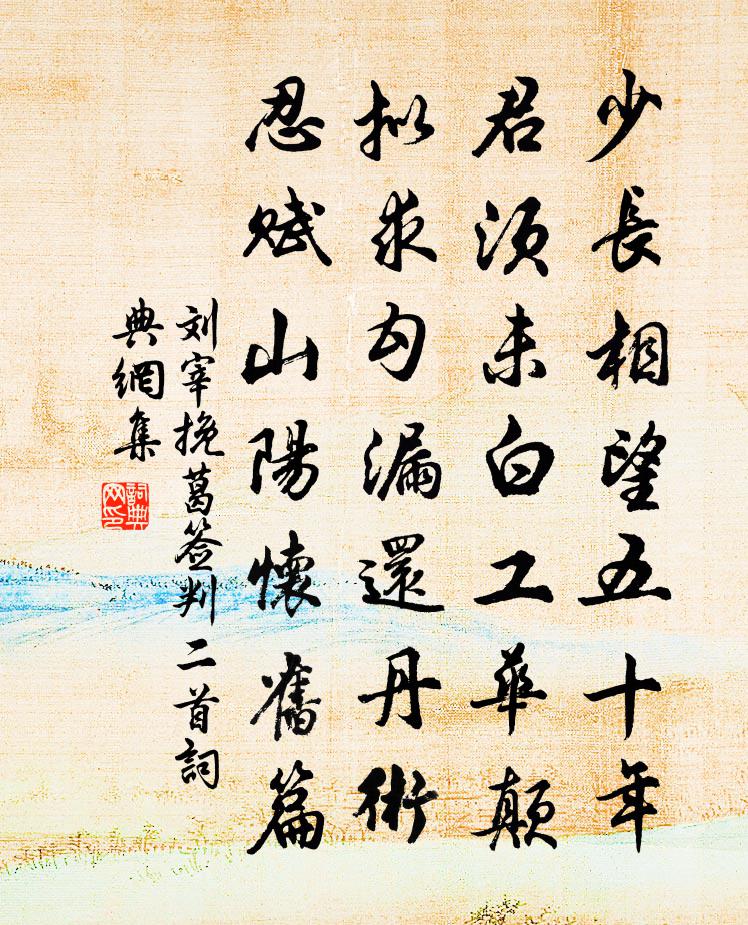 少長相望五十年
君须未白工華颠
拟求勾漏還丹術
忍赋山陽懷舊篇
刘宰挽葛签判二首詞
典網集
詞典
网印